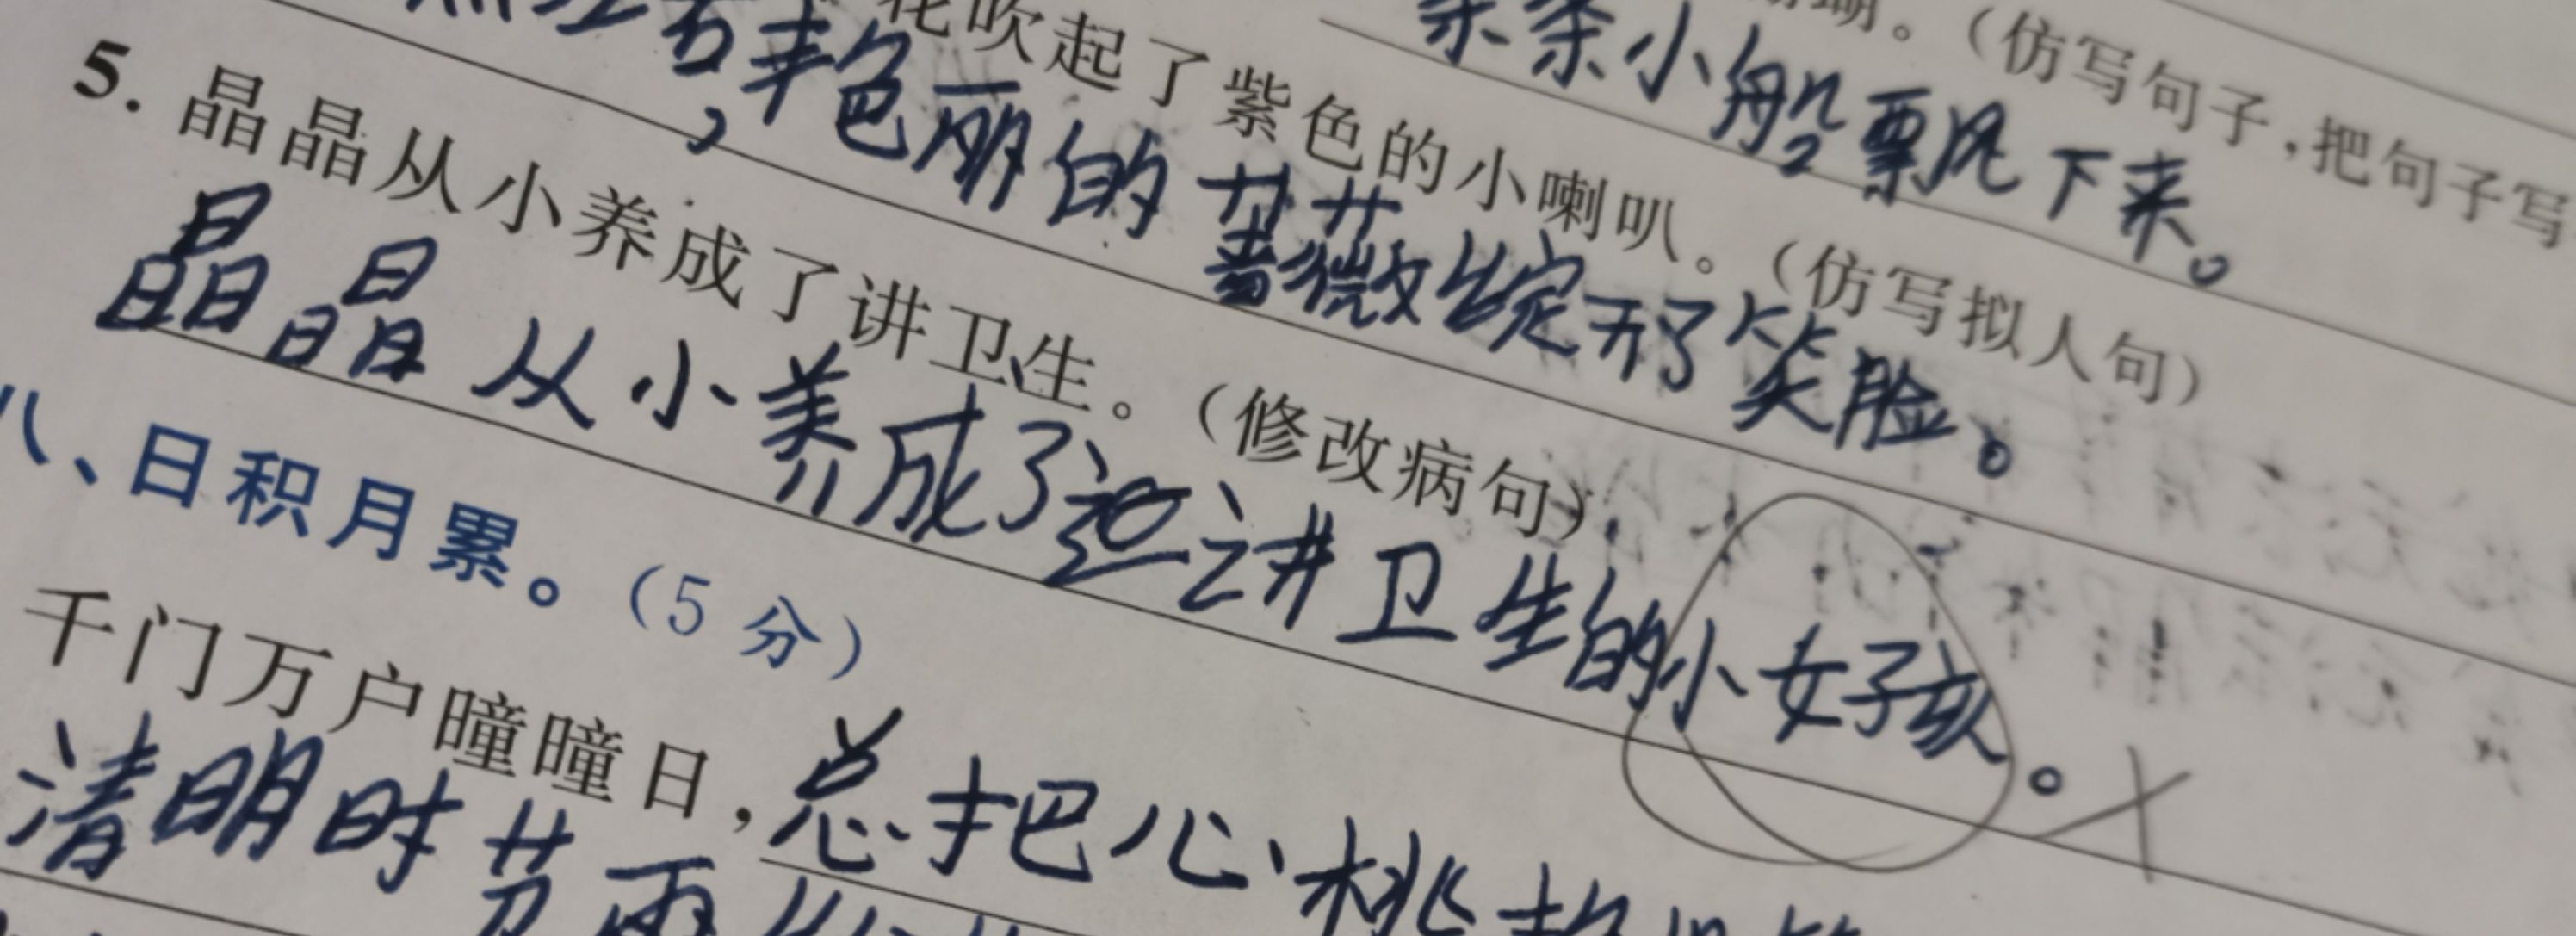 。（仿写句子，把句子写
条条小船飘下来。
花吹起了紫色的小喇叭。（仿写拟人句）
，艳丽的蔷薇绽开了笑脸。
5. 晶晶从小养成了讲卫生。（修改病句）
晶晶从小养成了讲卫生的小女孩。
八、日积月累。（5 分）
千门万户曈曈日，总把心桃
清明时节雨